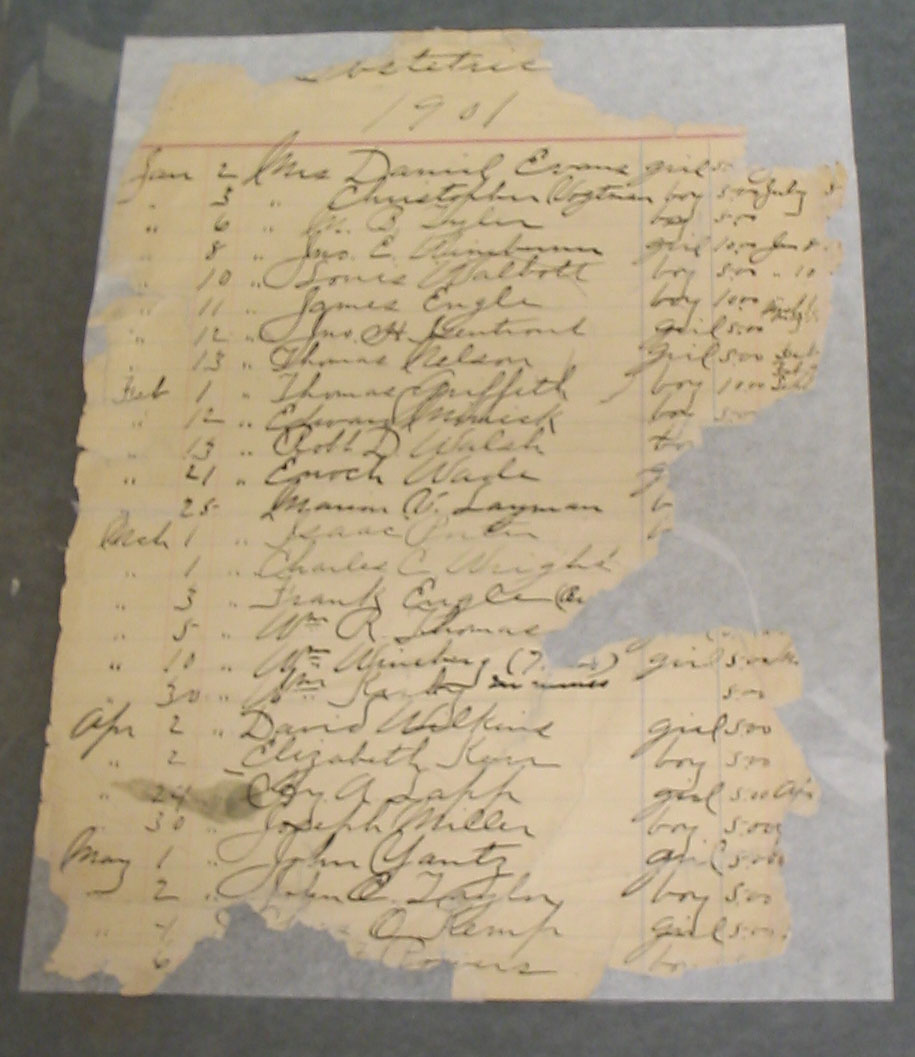 Obstetric
1901
Jan 2 Mrs Daniel Evans girl 5
" 3 " Christopher Vogtman boy 500 July
" 6 " M. B. Tyler boy 500
" 8 " Jno. E. girl 1000 Jan 8
" 10 " Louis Walbott boy 500 " 10
" 11 " James Engle boy 1000
" 12 " Jno. H. girl 500
" 13 " Thomas Nelson girl 500
Feb 1 " Thomas Griffith boy 1000
" 12 " Edward boy 500
" 13 " Robt D. Walsh bo
" 21 " Enoch Wade g
" 25 " Marion V. Layman b
Mch 1 " Isaac Porter b
" 1 " Charles C. Wright
" 3 " Frank Engle
" 5 " Wm R. Thomas
" 10 " Wm Wineberg girl 500
30 " Wm 500
Apr 2 " David Wilkins girl 500
" 2 " Elizabeth Kerr boy 500
" 24 A. Zapp girl 500 Apr
30 " Joseph Miller boy 500
May 1 " John Yantz girl 500
" 2 " John C. Taylor boy 500
4 O Kemp girl 500
6 bo